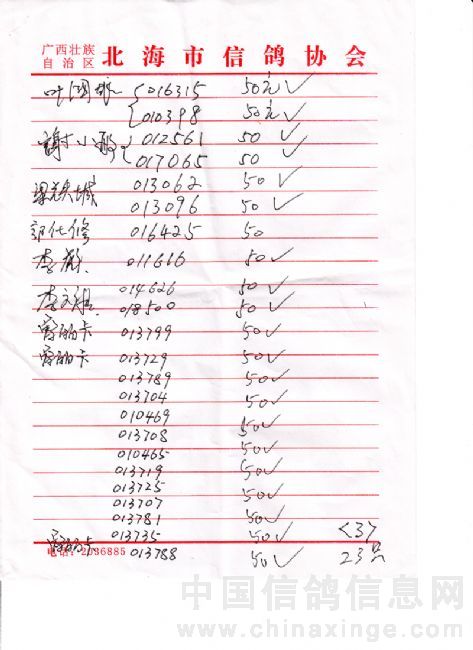 广西壮族
自治区
北海市信鸽协会
016315 50元✓
010398 50元✓
谢小 012561 50 ✓
017065 50 ✓
013062 50✓
013096 50✓
016425 50
李 011666 50✓
014626 50✓
李文 018500 50✓
卡 013799 50✓
卡 013729 50✓
013789 50✓
013704 50✓
010469 50✓
013708 50✓
010465 50✓
013719 50✓
013725 50✓
013707 50✓
013781 50✓
013735 50✓ <3>
卡 013788 50✓ 23只
电话: 2136885
中国信鸽信息网
www.chinaxinge.com